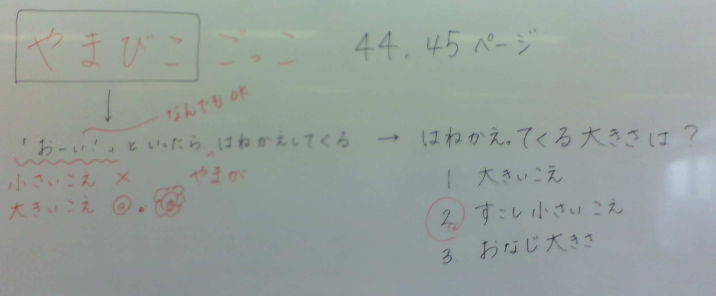 やまびこ ごっこ 44.45ページ
なんでもOK
「おーい!」といったら はねかえしてくる → はねかえってくる大きさは?
小さいこえ × やまが
大きいこえ ◎.
1 大きいこえ
2. すこし小さいこえ
3. おなじ大きさ